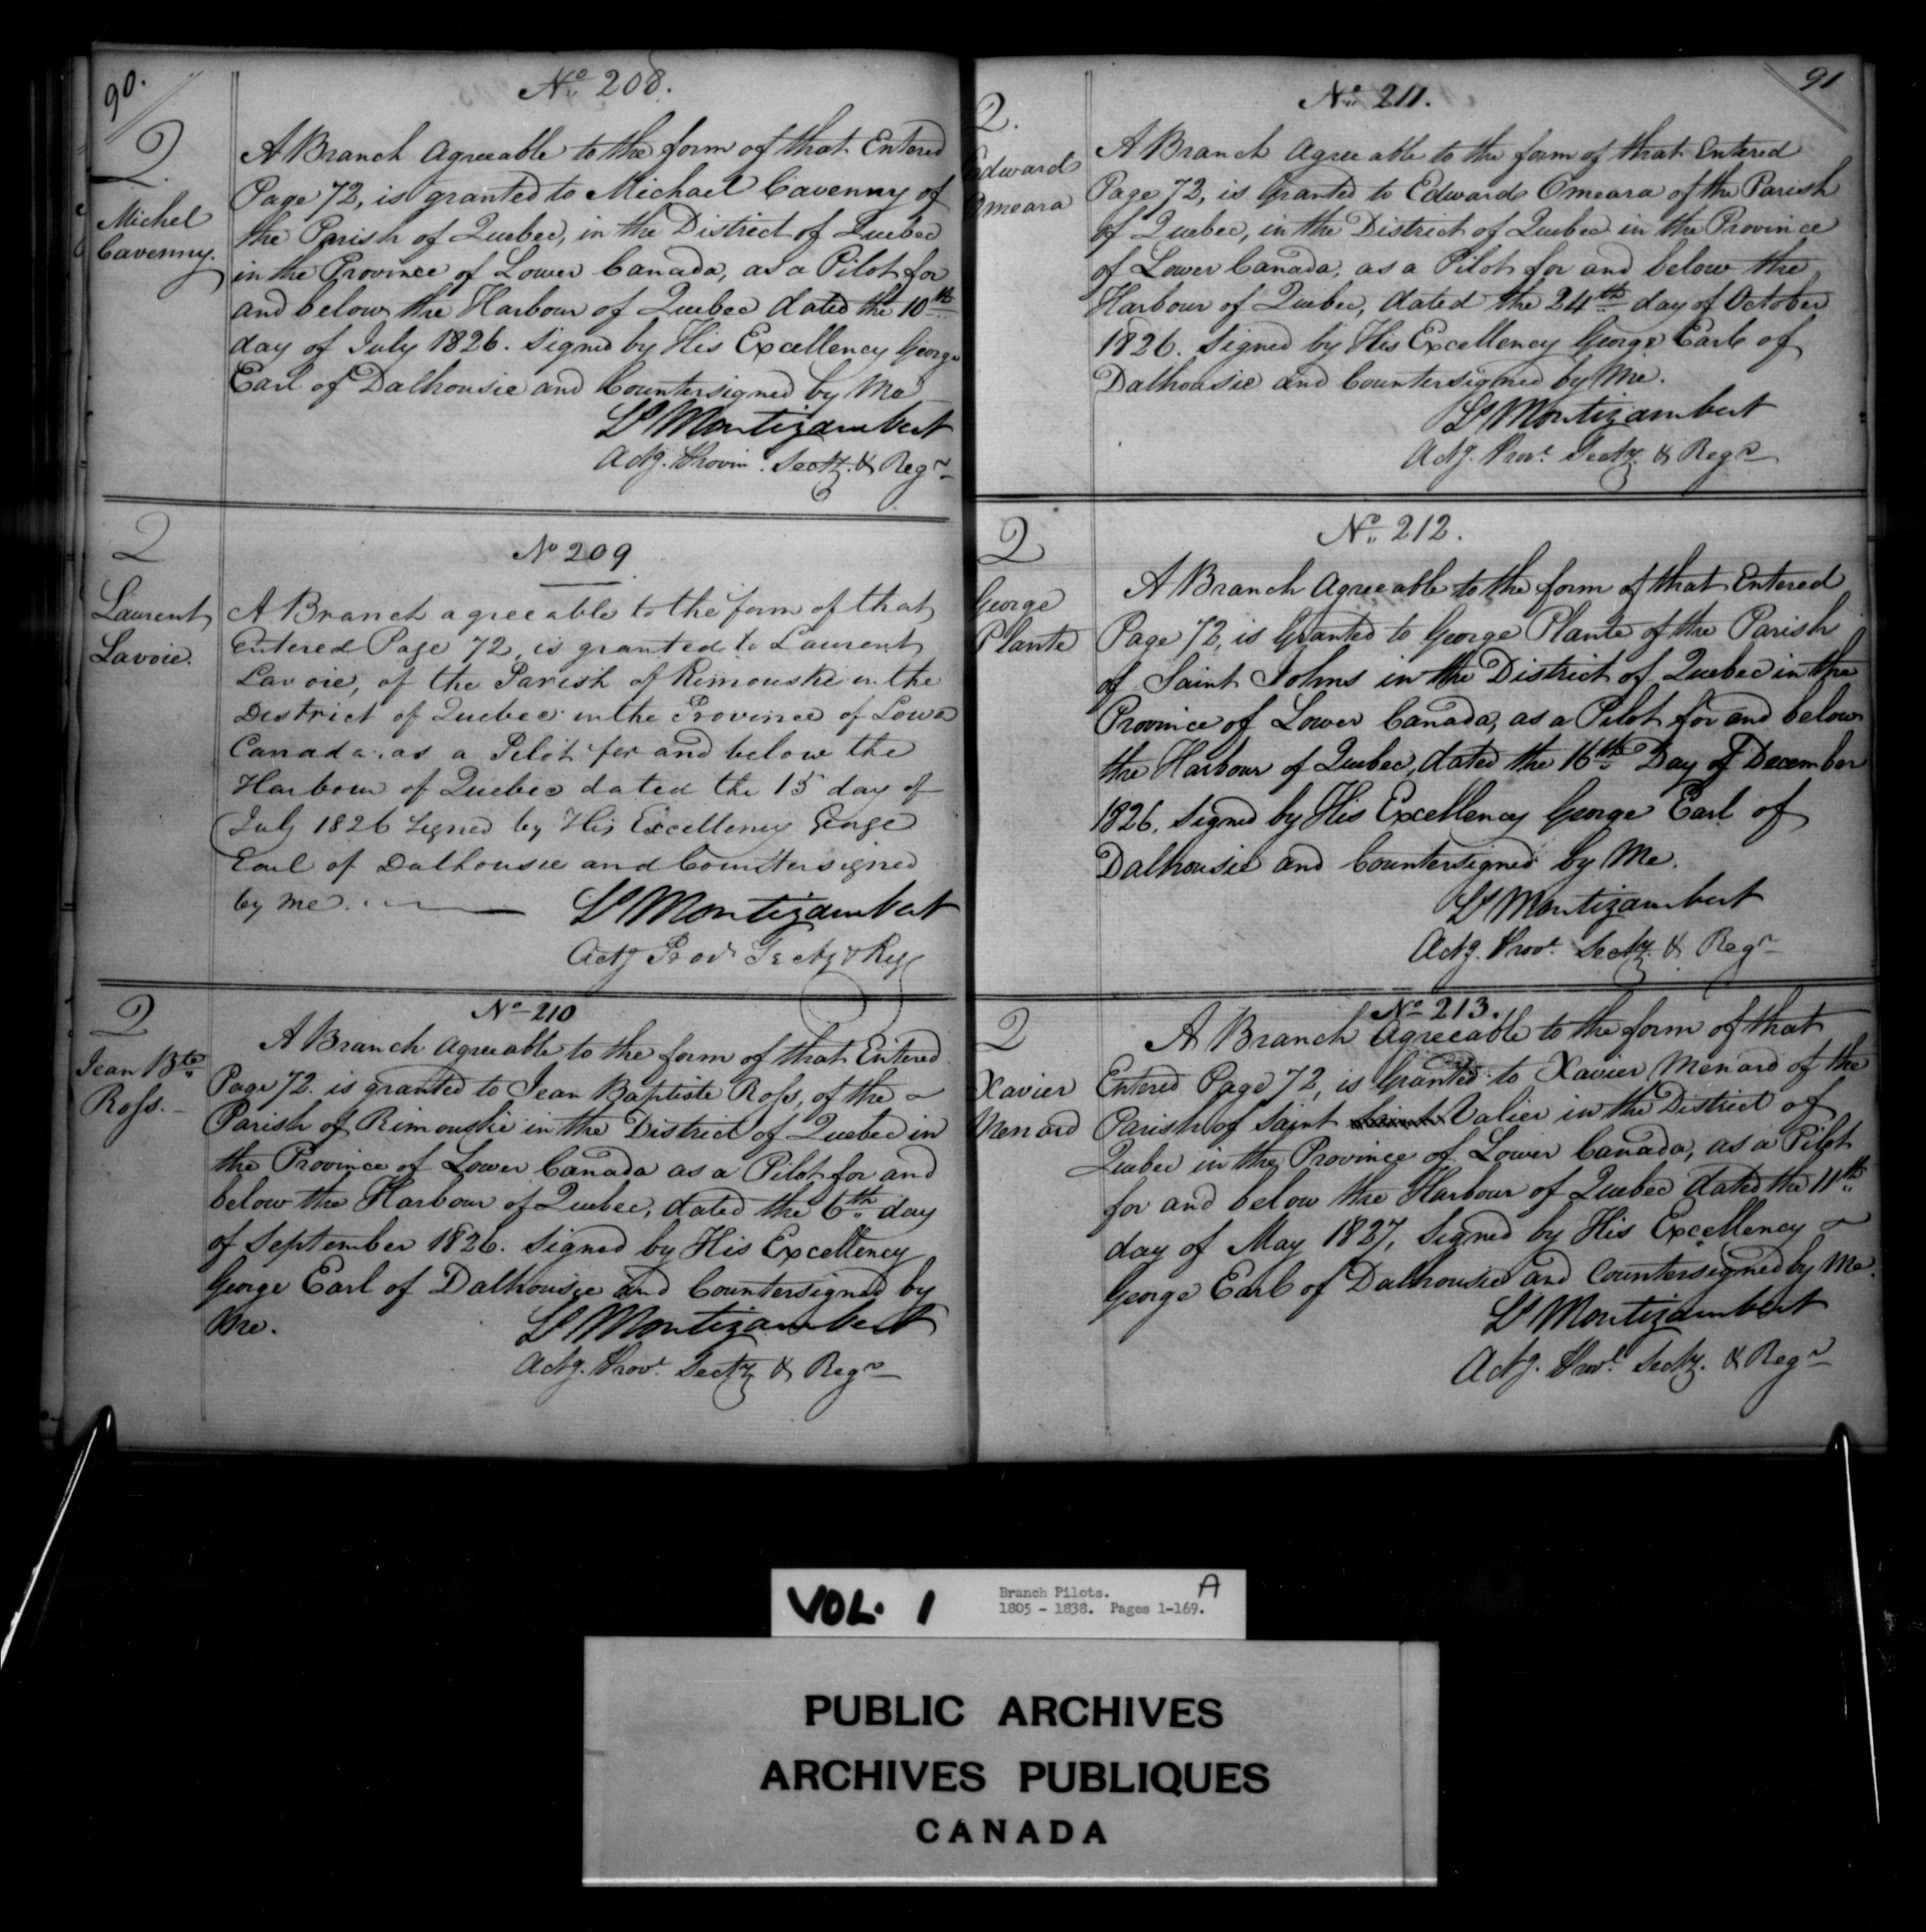 90.
No 208.
2
Michel
Cavenny.
A Branch Agreeable to the form of that Entered
Page 72, is granted to Michael Cavenny of
the Parish of Quebec, in the District of Quebec
in the Province of Lower Canada, as a Pilot for
and below the Harbour of Quebec dated the 10th
day of July 1826. Signed by His Excellency George
Earl of Dalhousie and Countersigned by Me
Ls Montizambert
Actg. Provinl. Secty. & Regr
2
No 209
Laurent
Lavoie.
A Branch agreeable to the form of that
Entered Page 72, is granted to Laurent
Lavoie, of the Parish of Rimouski in the
District of Quebec in the Province of Lower
Canada, as a Pilot for and below the
Harbour of Quebec dated the 15 day of
July 1826 signed by His Excellency George
Earl of Dalhousie and Countersigned
by me.
Ls Montizambert
Actg Provl Secty & Reg
2
No 210
Jean Bte
Ross.
A Branch Agreeable to the form of that Entered
Page 72. is granted to Jean Baptiste Ross, of the
Parish of Rimouskie in the District of Quebec in
the Province of Lower Canada as a Pilot for and
below the Harbour of Quebec, dated the 6th day
of September 1826. Signed by His Excellency
George Earl of Dalhousie and Countersigned by
Me.
Ls Montizambert
Actg. Provl. Secty & Regr
91
No 211.
2.
Edward
Omeara
A Branch Agreeable to the form of that Entered
Page 72, is Granted to Edward Omeara of the Parish
of Quebec, in the District of Quebec in the Province
of Lower Canada, as a Pilot for and below the
Harbour of Quebec, dated the 24th day of October
1826. Signed by His Excellency George Earl of
Dalhousie and Countersigned by Me.
Ls Montizambert
Actg. Provl. Secty & Regr
2
No 212.
George
Plante
A Branch Agreeable to the form of that Entered
Page 72, is Granted to George Plante of the Parish
of Saint Johns in the District of Quebec in the
Province of Lower Canada, as a Pilot for and below
the Harbour of Quebec, dated the 16th Day of December
1826. Signed by His Excellency George Earl of
Dalhousie and Countersigned by Me.
Ls Montizambert
Actg. Provl. Secty. & Regr
2
No 213.
Xavier
Menard
A Branch Agreeable to the form of that
Entered Page 72, is Granted to Xavier Menard of the
Parish of Saint Valier in the District of
Quebec in the Province of Lower Canada, as a Pilot
for and below the Harbour of Quebec dated the 11th
day of May 1827, Signed by His Excellency
George Earl of Dalhousie and Countersigned by Me.
Ls Montizambert
Actg. Provl. Secty. & Regr
VOL. 1
Branch Pilots.
1805 - 1838. Pages 1-169.
A
PUBLIC ARCHIVES
ARCHIVES PUBLIQUES
CANADA